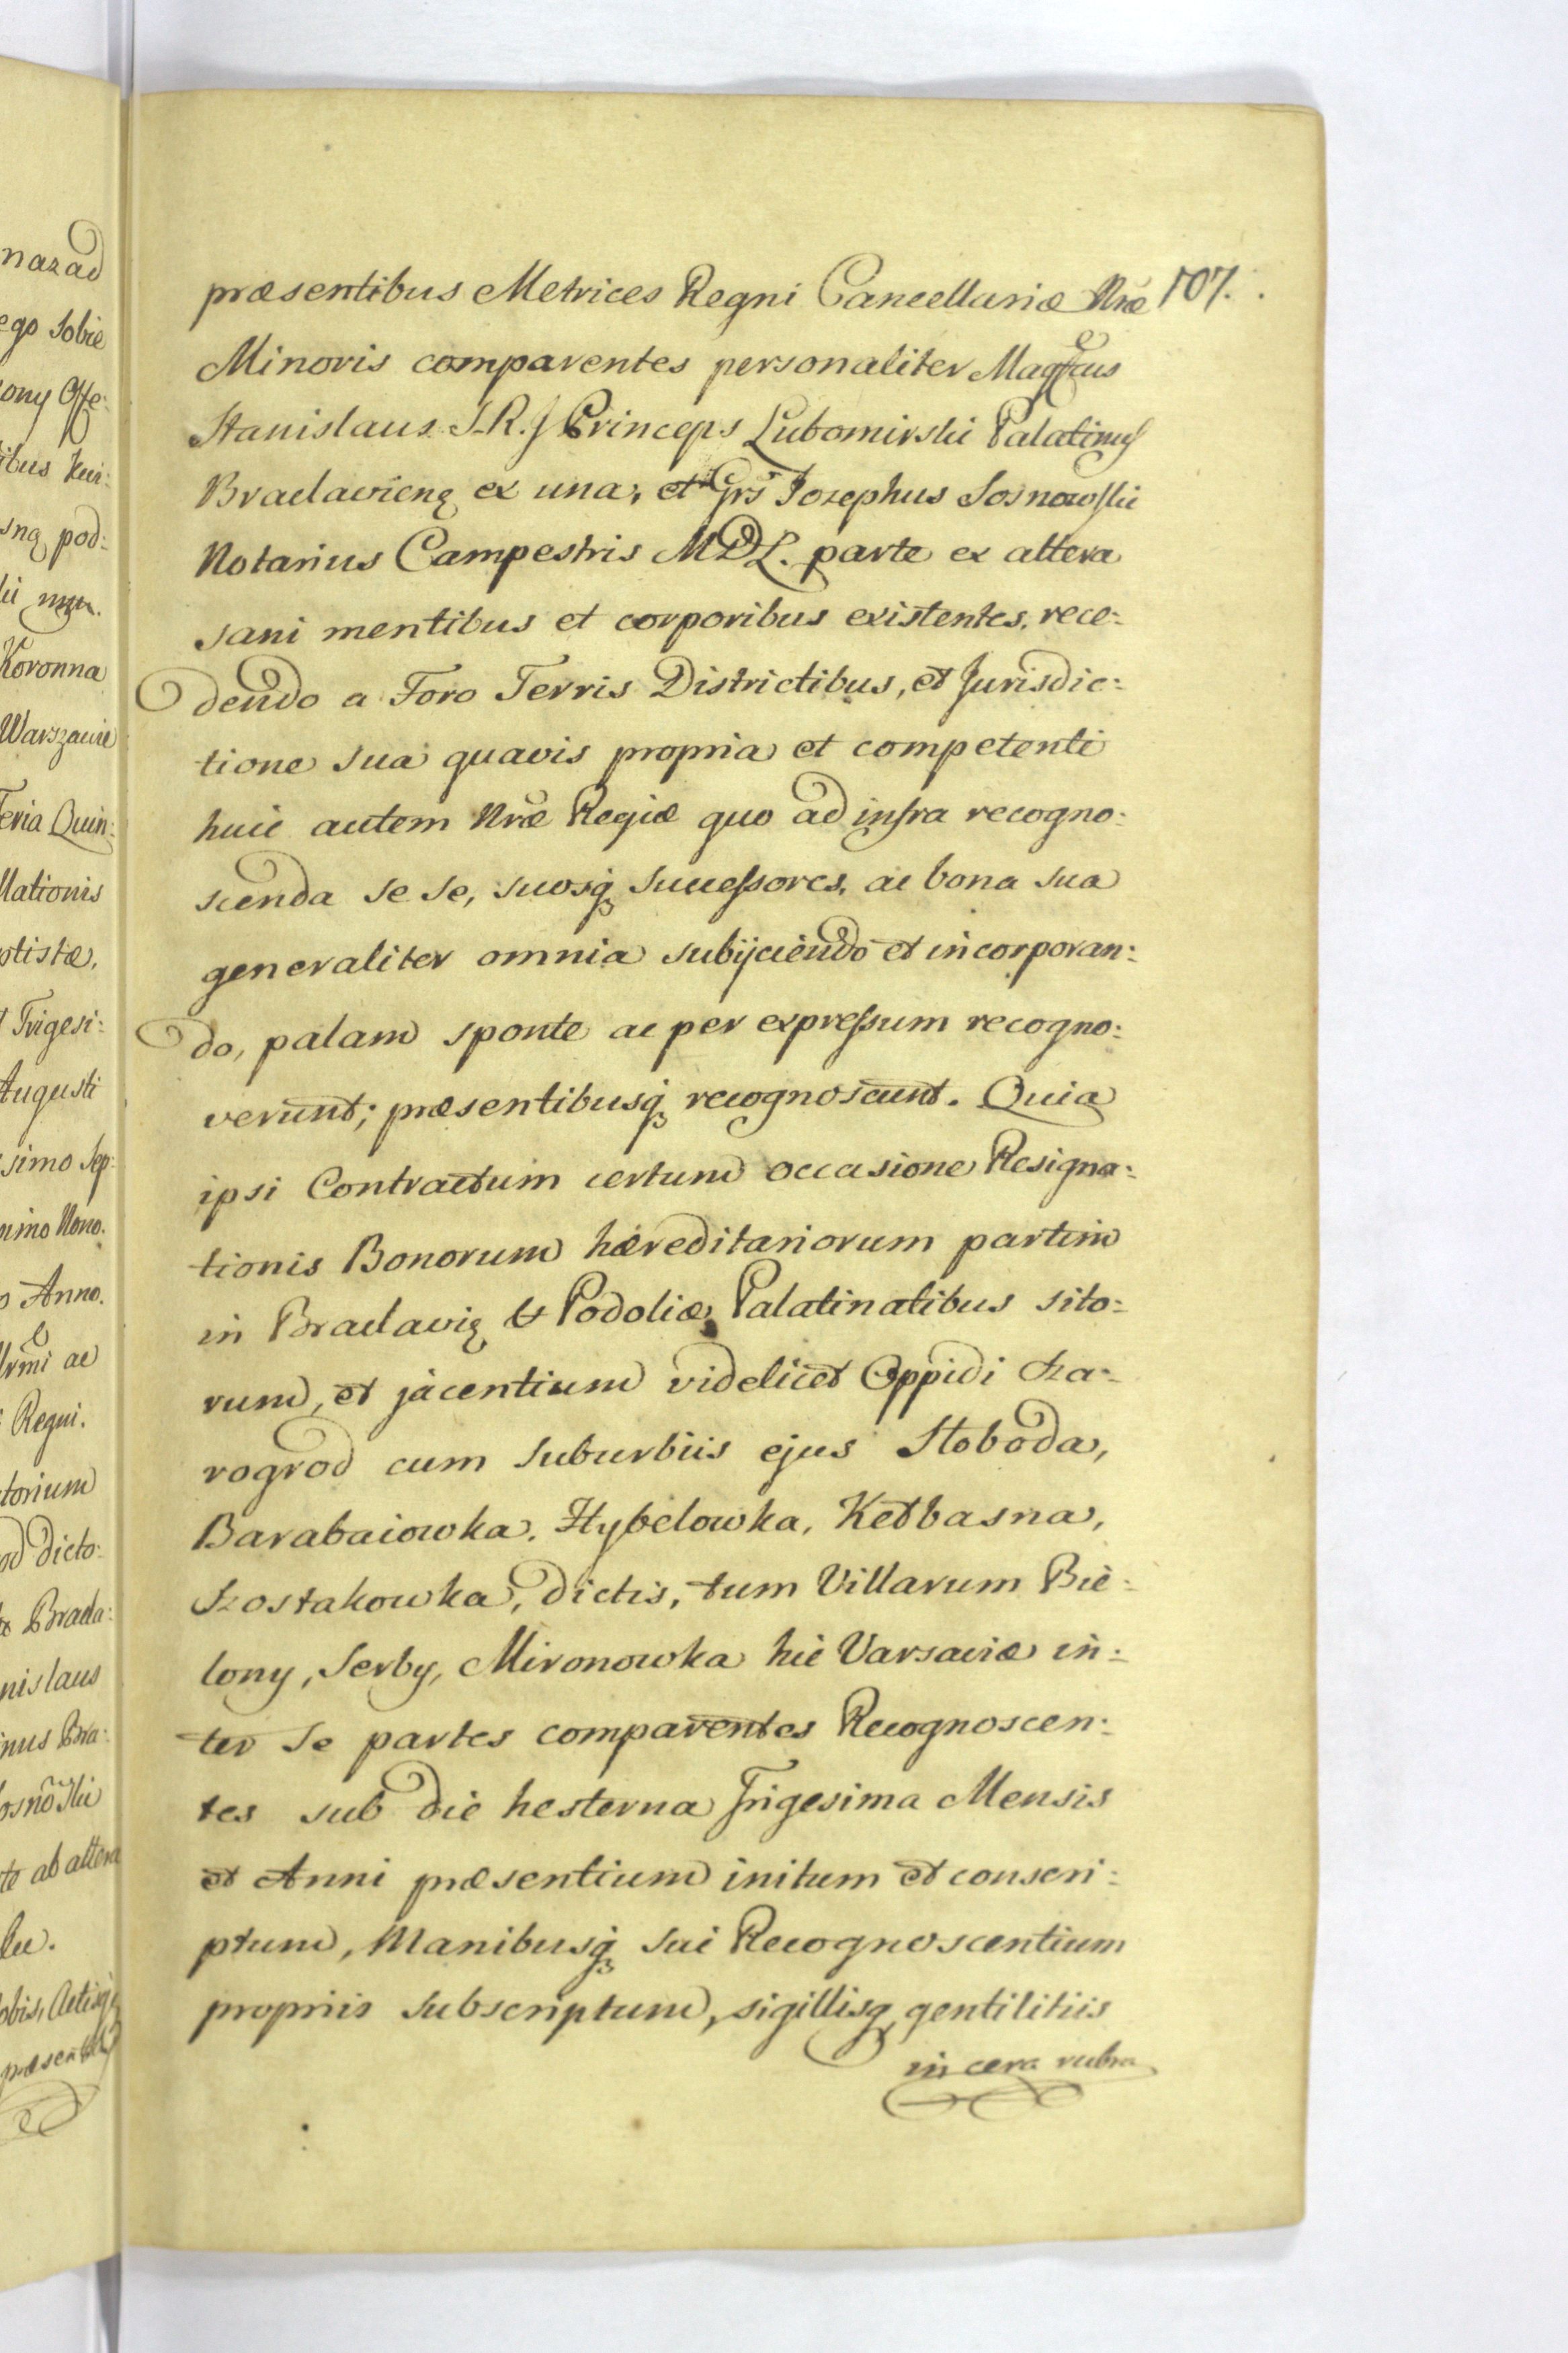 præsentibus Metrices Regni Cancellariæ Nræ 107.
Minoris comparentes personaliter Magfcus
Stanislaus S.R.J Princeps Lubomirski Palatinus
Braclavienę ex una, et Grs Jozephus Sosnowski
Notarius Campestris MDL. parte ex altera
sani mentibus et corporibus existentes, rece:
dendo a Foro Terris Districtibus, et Jurisdic:
tione sua quavis propria et competenti
huic autem Nræ Regiæ quo ad infra recogno:
scenda se se, suosq successores, ac bona sua
generaliter omnia subijciendo et incorporan:
do, palam sponte ac per expressum recogno:
verunt; præsentibusq recognoscunt. Quia
ipsi Contractum certum occasione Resigna:
tionis Bonorum hæreditariorum partim
in Braclavię & Podoliæ Palatinatibus sito:
rum, et jacentium videlicet Oppidi Sza:
rogrod cum suburbiis ejus Stoboda,
Barabaiowka, Hybelowka, Ketbasna,
Szostakowka, dictis, tum Villarum Bie:
lony, Serby, Mironowka hic Varsaviæ in:
ter se partes comparentes Recognoscen:
tes sub die hesterna Trigesima Mensis
et Anni præsentium initum et conscri:
ptum, Manibusq sui Recognoscentium
propriis subscriptum, sigillisq gentilitiis
in cera rubra
nazad
ego Sobie
ony Offe:
ibus
pod:
Koronna
Warszawie
Feria Quin:
llationis
ptistæ,
Trigesi:
Augusti
simo Sep:
simo Nono.
Anno.
ac
Regni.
torium
od dicto:
Bracla:
nislaus
inus Bra:
te ab altera
obis, Actisq
præsentib